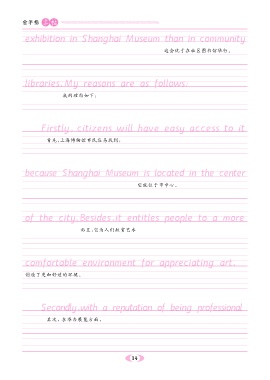 exhibition in Shanghai Museum than in community
这会优于在社区图书馆举行。
libraries. My reasons are as follows.
我的理由如下：
Firstly, citizens will have easy access to it
首先，上海博物馆市民容易找到，
because Shanghai Museum is located in the center
它就位于市中心。
of the city. Besides, it entitles people to a more
而且，它为人们欣赏艺术
comfortable environment for appreciating art.
创造了更加舒适的环境。
Secondly, with a reputation of being professional
其次，
14